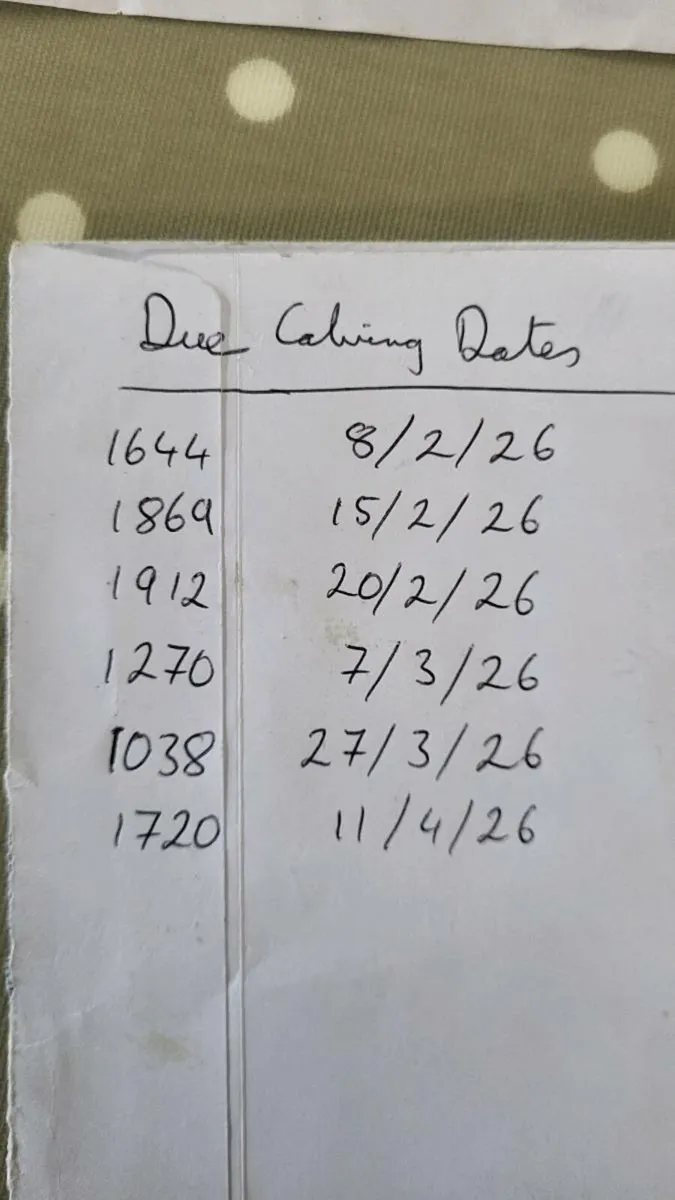 Due Calving Dates
1644 8/2/26
1869 15/2/26
1912 20/2/26
1270 7/3/26
1038 27/3/26
1720 11/4/26